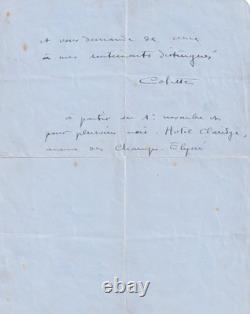 et vous demande de croire
à mes sentiments distingués
Colette
à partir du 1er novembre et
pour plusieurs mois. Hotel Claridge,
avenue des Champs-Elysées
122bis.com